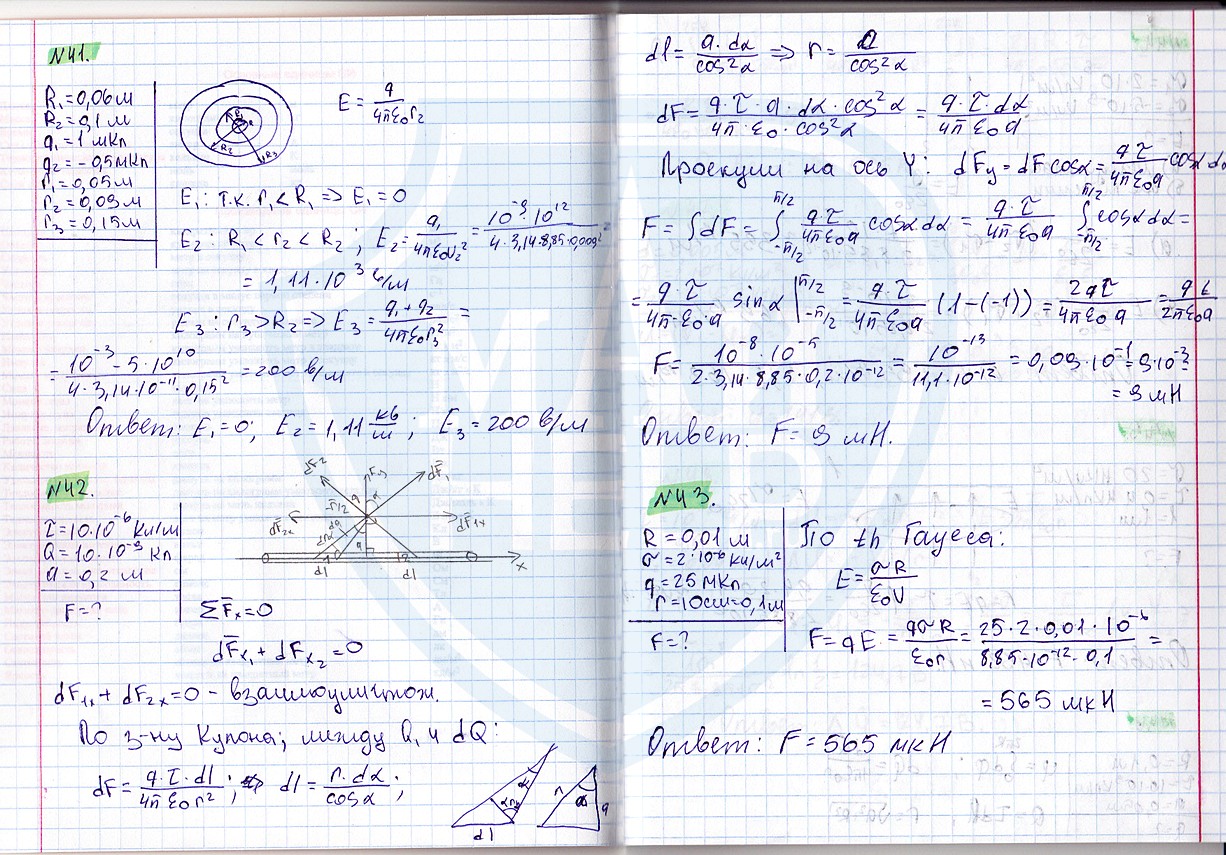 N41.
R₁=0,06м
R₂=0,1м
q₁=1 мКл
q₂=-0,5мКл
r₁=0,05м
r₂=0,09м
r₃=0,15м
R₂
R₃
E = q/4πε₀r₂
E₁: т.к. r₁<R₁ => E₁=0
E₂: R₁<r₂<R₂; E₂= q₁/4πε₀r₂² = 10⁻⁹·10¹²/4·3,14·8,85·0,009²
= 1,11·10³ в/м
E₃: r₃>R₂ => E₃= q₁+q₂/4πε₀r₃² =
= 10⁻³-5·10¹⁰/4·3,14·10⁻¹¹·0,15² = 200 в/м
Ответ: E₁=0; E₂=1,11 кв/м; E₃=200 в/м
N42.
τ=10·10⁻⁶ Кл/м
Q=10·10⁻⁹ Кл
a=0,2 м
F=?
dF̄₁
dF̄₂ₓ
dF̄₁ₓ
x
dl
dl
ΣF̄ₓ=0
dF̄ₓ₁+dFₓ₂=0
dF₁ₓ+dF₂ₓ=0 - взаимоуничтож.
По з-ну Кулона; между Q₁ и dQ:
dF= q·τ·dl/4πε₀r²; => dl= r·dα/cosα;
dl
r
α
a
dl= a·dα/cos²α => r= a/cos²α
dF= q·τ·a·dα·cos²α/4π·ε₀·cos²α = q·τ·dα/4πε₀a
Проекции на ось Y: dFy=dFcosα= qτ/4πε₀a cosαdα
F=∫dF= ∫₋π/₂^π/2 qτ/4πε₀a cosαdα = q·τ/4πε₀a ∫₋π/₂^π/2 cosαdα=
= q·τ/4π·ε₀·a sinα|₋π/₂^π/2 = q·τ/4πε₀a (1-(-1)) = 2qτ/4πε₀a = qτ/2πε₀a
F= 10⁻⁸·10⁻⁵/2·3,14·8,85·0,2·10⁻¹² = 10⁻¹³/11,1·10⁻¹² = 0,09·10⁻¹=9·10⁻³=
= 9 мН
Ответ: F= 9 мН.
N43.
R=0,01 м
σ=2·10⁻⁶ кл/м²
q=25 мКл
r=10см=0,1м
F=?
По th Гаусса:
E= σR/ε₀r
F=qE= qσR/ε₀r = 25·2·0,01·10⁻⁶/8,85·10⁻¹²·0,1 =
= 565 мкН
Ответ: F=565 мкН